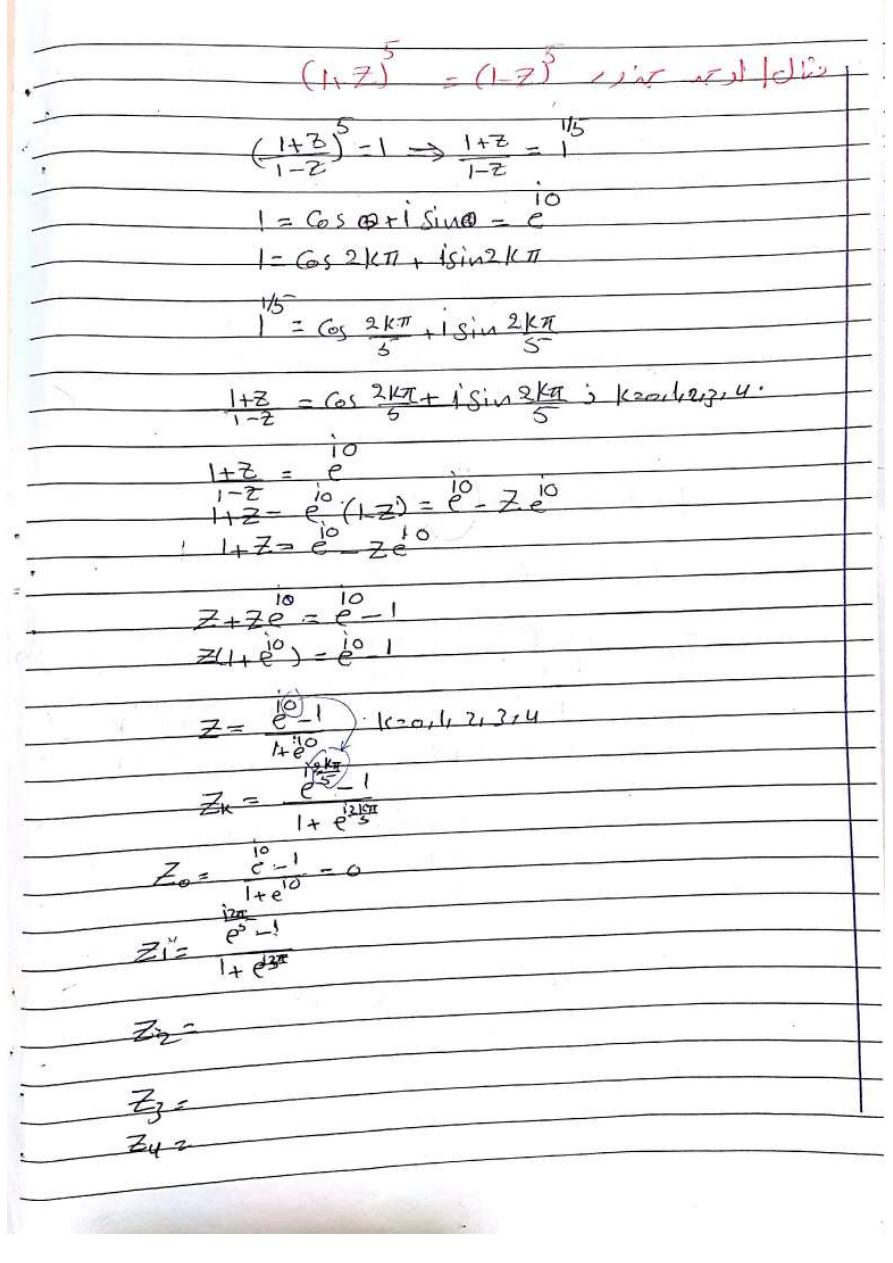 مثال / اوجد جذور (1+Z)^5 = (1-Z)^5
((1+Z)/(1-Z))^5 = 1 ⇒ (1+Z)/(1-Z) = 1^(1/5)
1 = Cos θ + i Sin θ = e^(iθ)
1 = Cos 2kπ + i sin 2kπ
1^(1/5) = Cos 2kπ/5 + i Sin 2kπ/5
(1+Z)/(1-Z) = Cos 2kπ/5 + i Sin 2kπ/5 ; k=0,1,2,3,4.
(1+Z)/(1-Z) = e^(iθ)
1+Z = e^(iθ).(1-Z) = e^(iθ) - Z e^(iθ)
1+Z = e^(iθ) - Z e^(iθ)
Z + Z e^(iθ) = e^(iθ) - 1
Z(1+e^(iθ)) = e^(iθ) - 1
Z = (e^(iθ) - 1)/(1+e^(iθ)) . k=0,1,2,3,4
Z_k = (e^(i2kπ/5) - 1)/(1 + e^(i2kπ/5))
Z_0 = (e^(i0) - 1)/(1+e^(i0)) = 0
Z_1 = (e^(i2π/5) - 1)/(1 + e^(i2π/5))
Z_2 =
Z_3 =
Z_4 =